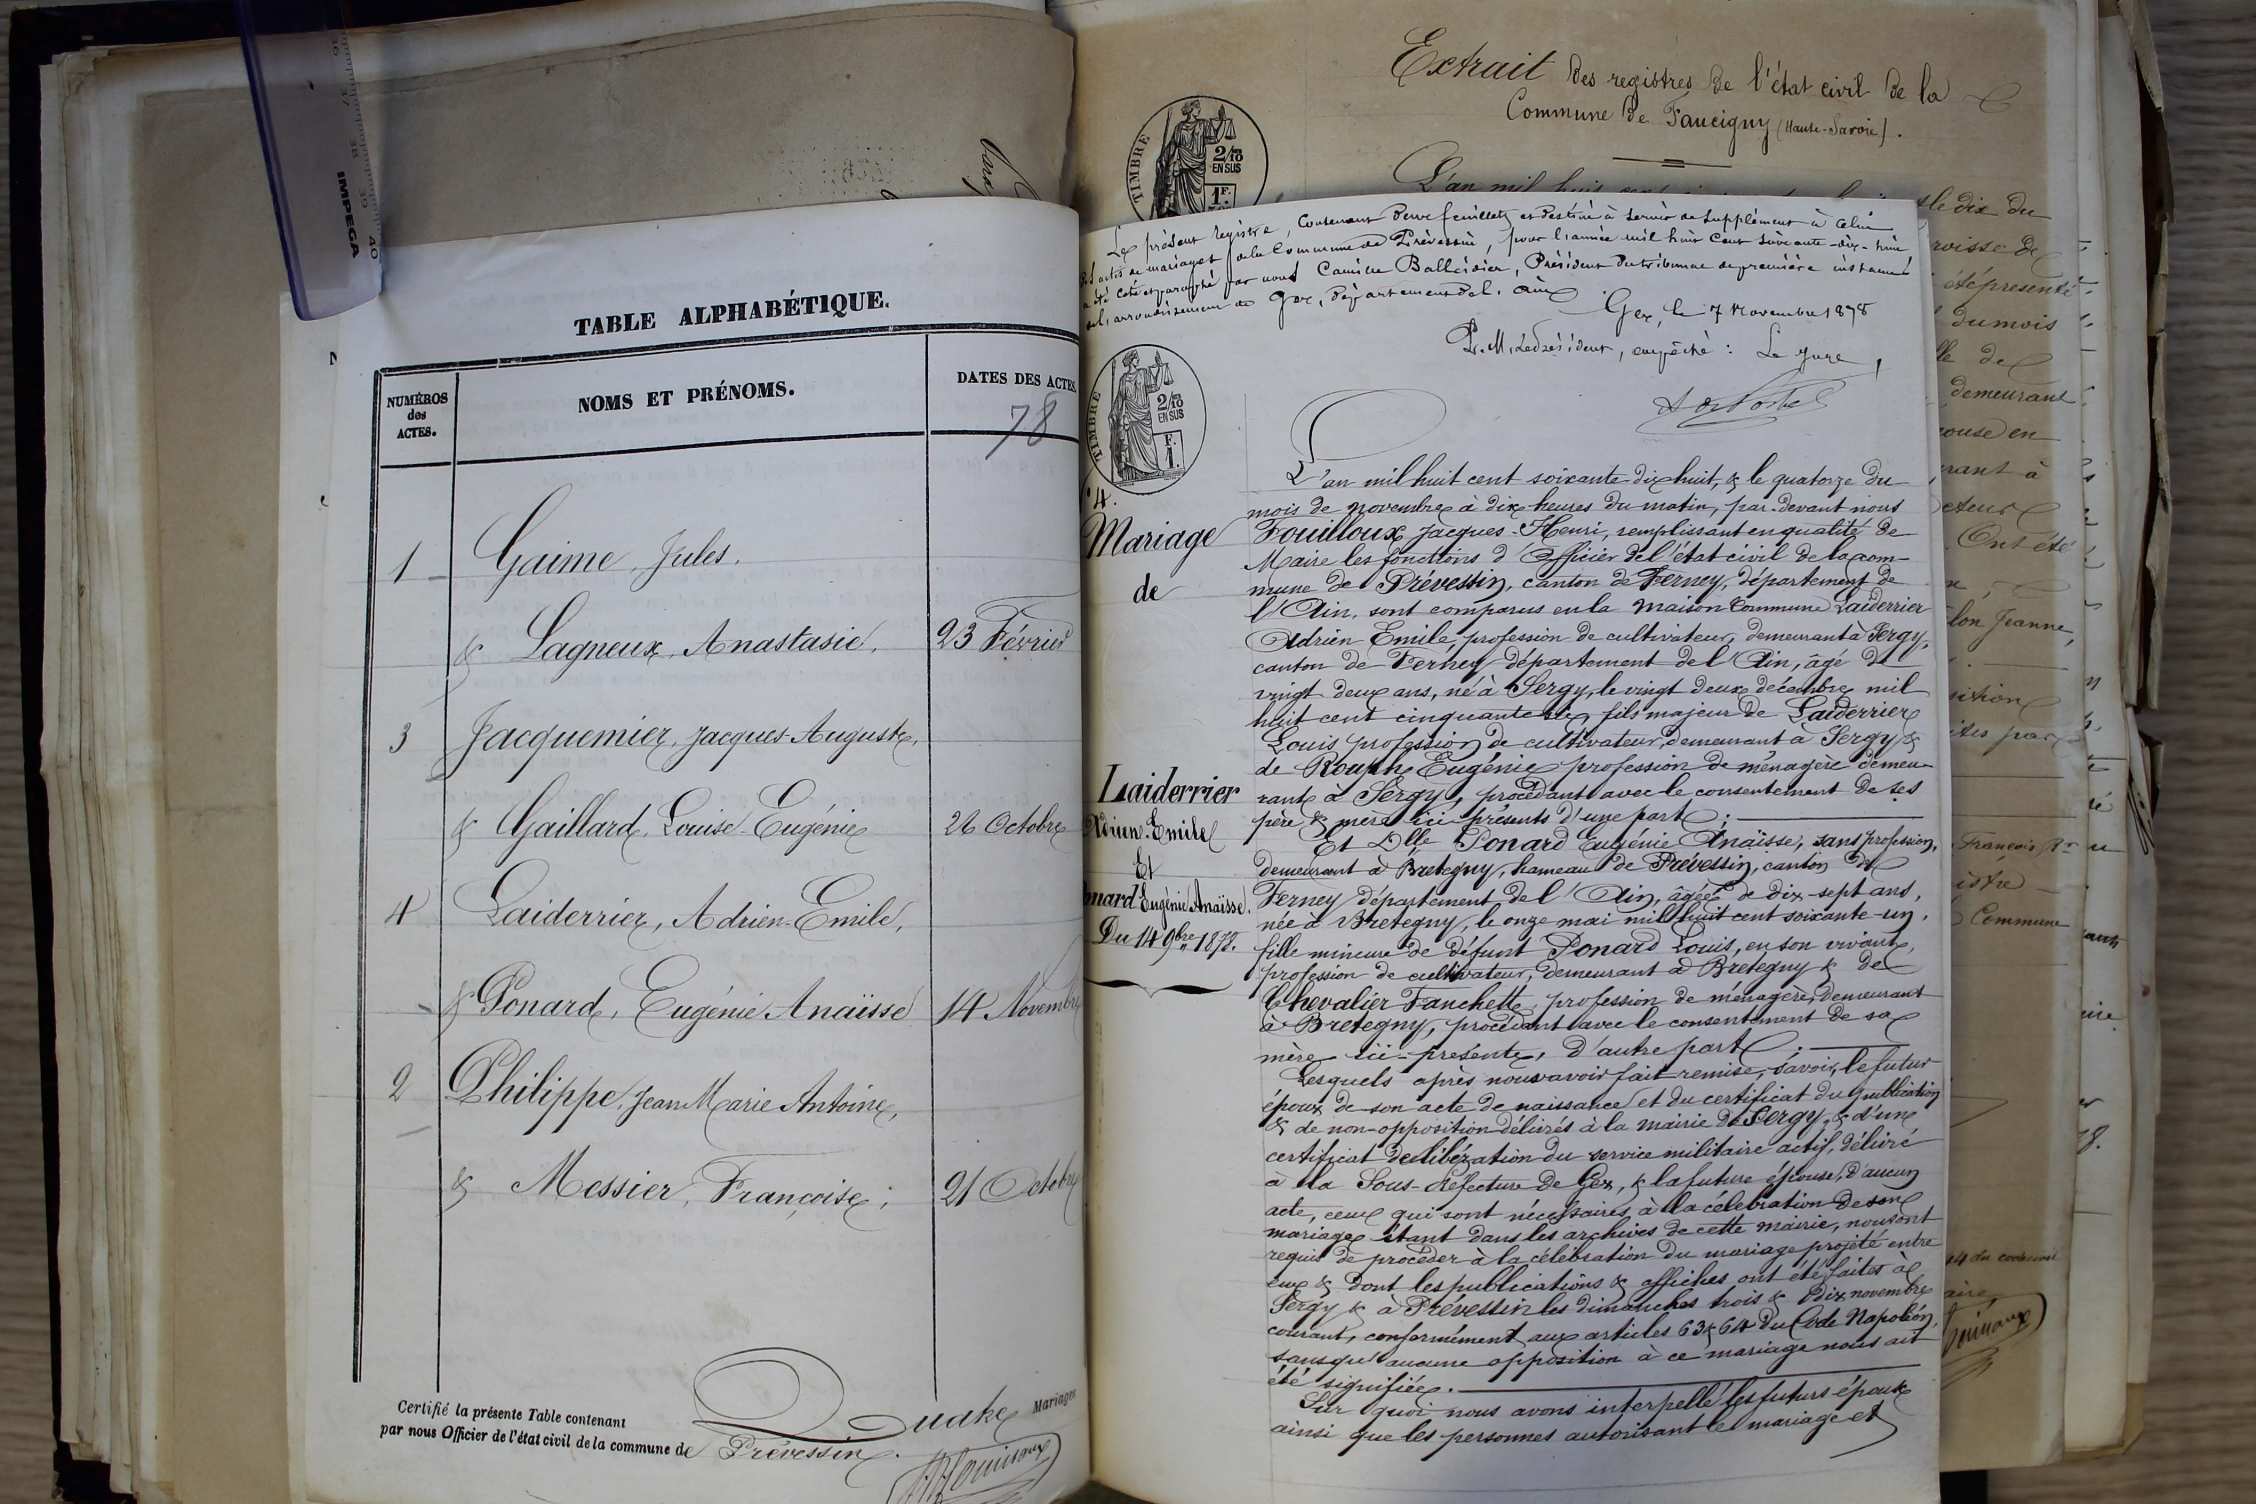 IMPEGA
TABLE ALPHABÉTIQUE.
NUMÉROS
des
ACTES.
NOMS ET PRÉNOMS.
DATES DES ACTES
78
1 Gaime, Jules.
& Lagneux, Anastasie, 23 Février
3 Jacquemier, Jacques-Auguste,
& Gaillard, Louise-Eugénie 26 Octobre
4 Laiderrier, Adrien-Emile,
& Ponard, Eugénie Anaïsse 14 Novembre
2 Philippe, Jean Marie Antoine,
& Messier, Françoise, 21 Octobre
Certifié la présente Table contenant Quatre Mariages
par nous Officier de l'état civil de la commune de Prévessin.
Extrait des registres de l'état civil de la
Commune de Faucigny (Haute-Savoie).
TIMBRE
2/10
EN SUS
1F.
L'an mil huit cent
Le présent registre, contenant deux feuillets et destiné à servir de supplément à celui
des actes de mariages de la Commune de Prévessin, pour l'année mil huit cent soixante-dix-huit
a été coté et paraphé par nous Camille Balleidier, Président du tribunal de première instance
de l'arrondissement de Gex, département de l'Ain
Gex, le 7 Novembre 1878
P. M. le Président, empêché: Le Juge,
TIMBRE
2/10
EN SUS
F.
1.
4.
Mariage
de
Laiderrier
Adrien-Emile
Et
Ponard Eugénie Anaïsse.
Du 14 9bre 1878.
L'an mil huit cent soixante-dix huit, & le quatorze du
mois de novembre à dix heures du matin, par-devant nous
Fouilloux Jacques-Henri, remplissant en qualité de
Maire les fonctions d'Officier de l'état civil de la com-
mune de Prévessin, canton de Ferney, département de
l'Ain, sont comparus en la maison commune Laiderrier
Adrien Emile, profession de cultivateur, demeurant à Sergy,
canton de Ferney département de l'Ain, âgé de
vingt deux ans, né à Sergy, le vingt deux décembre mil
huit cent cinquante six, fils majeur de Laiderrier
Louis profession de cultivateur, demeurant à Sergy &
de Rouph Eugénie profession de ménagère demeu-
rant à Sergy, procédant avec le consentement de ses
père & mère ici présents d'une part.
Et Dlle Ponard Eugénie Anaïsse, sans profession,
demeurant à Bretegny, hameau de Prévessin, canton de
Ferney département de l'Ain, âgée de dix-sept ans,
née à Bretegny, le onze mai mil huit cent soixante-un,
fille mineure de défunt Ponard Louis, en son vivant,
profession de cultivateur, demeurant à Bretegny & de
Chevalier Fanchette, profession de ménagère, demeurant
à Bretegny, procédant avec le consentement de sa
mère ici-présente, d'autre part.
Lesquels après nous avoir fait remise, savoir, le futur
époux de son acte de naissance et du certificat du publication
& de non-opposition délivrés à la mairie de Sergy, & d'une
certificat de libération du service militaire actif, délivré
à la Sous-Préfecture de Gex, & la future épouse, d'aucun
acte, ceux qui sont nécessaires à la célébration de son
mariage étant dans les archives de cette mairie, nous ont
requis de procéder à la célébration du mariage projeté entre
eux & dont les publications & affiches ont été faites à
Sergy & à Prévessin les dimanches trois & dix novembre
courant, conformément aux articles 63 & 64 du Code Napoléon,
sans qu'aucune opposition à ce mariage nous ait
été signifiée.
Sur quoi nous avons interpellé les futurs époux
ainsi que les personnes autorisant le mariage et
le dix du
demeurant
Ont été
Jeanne,
ites par
François
Commune